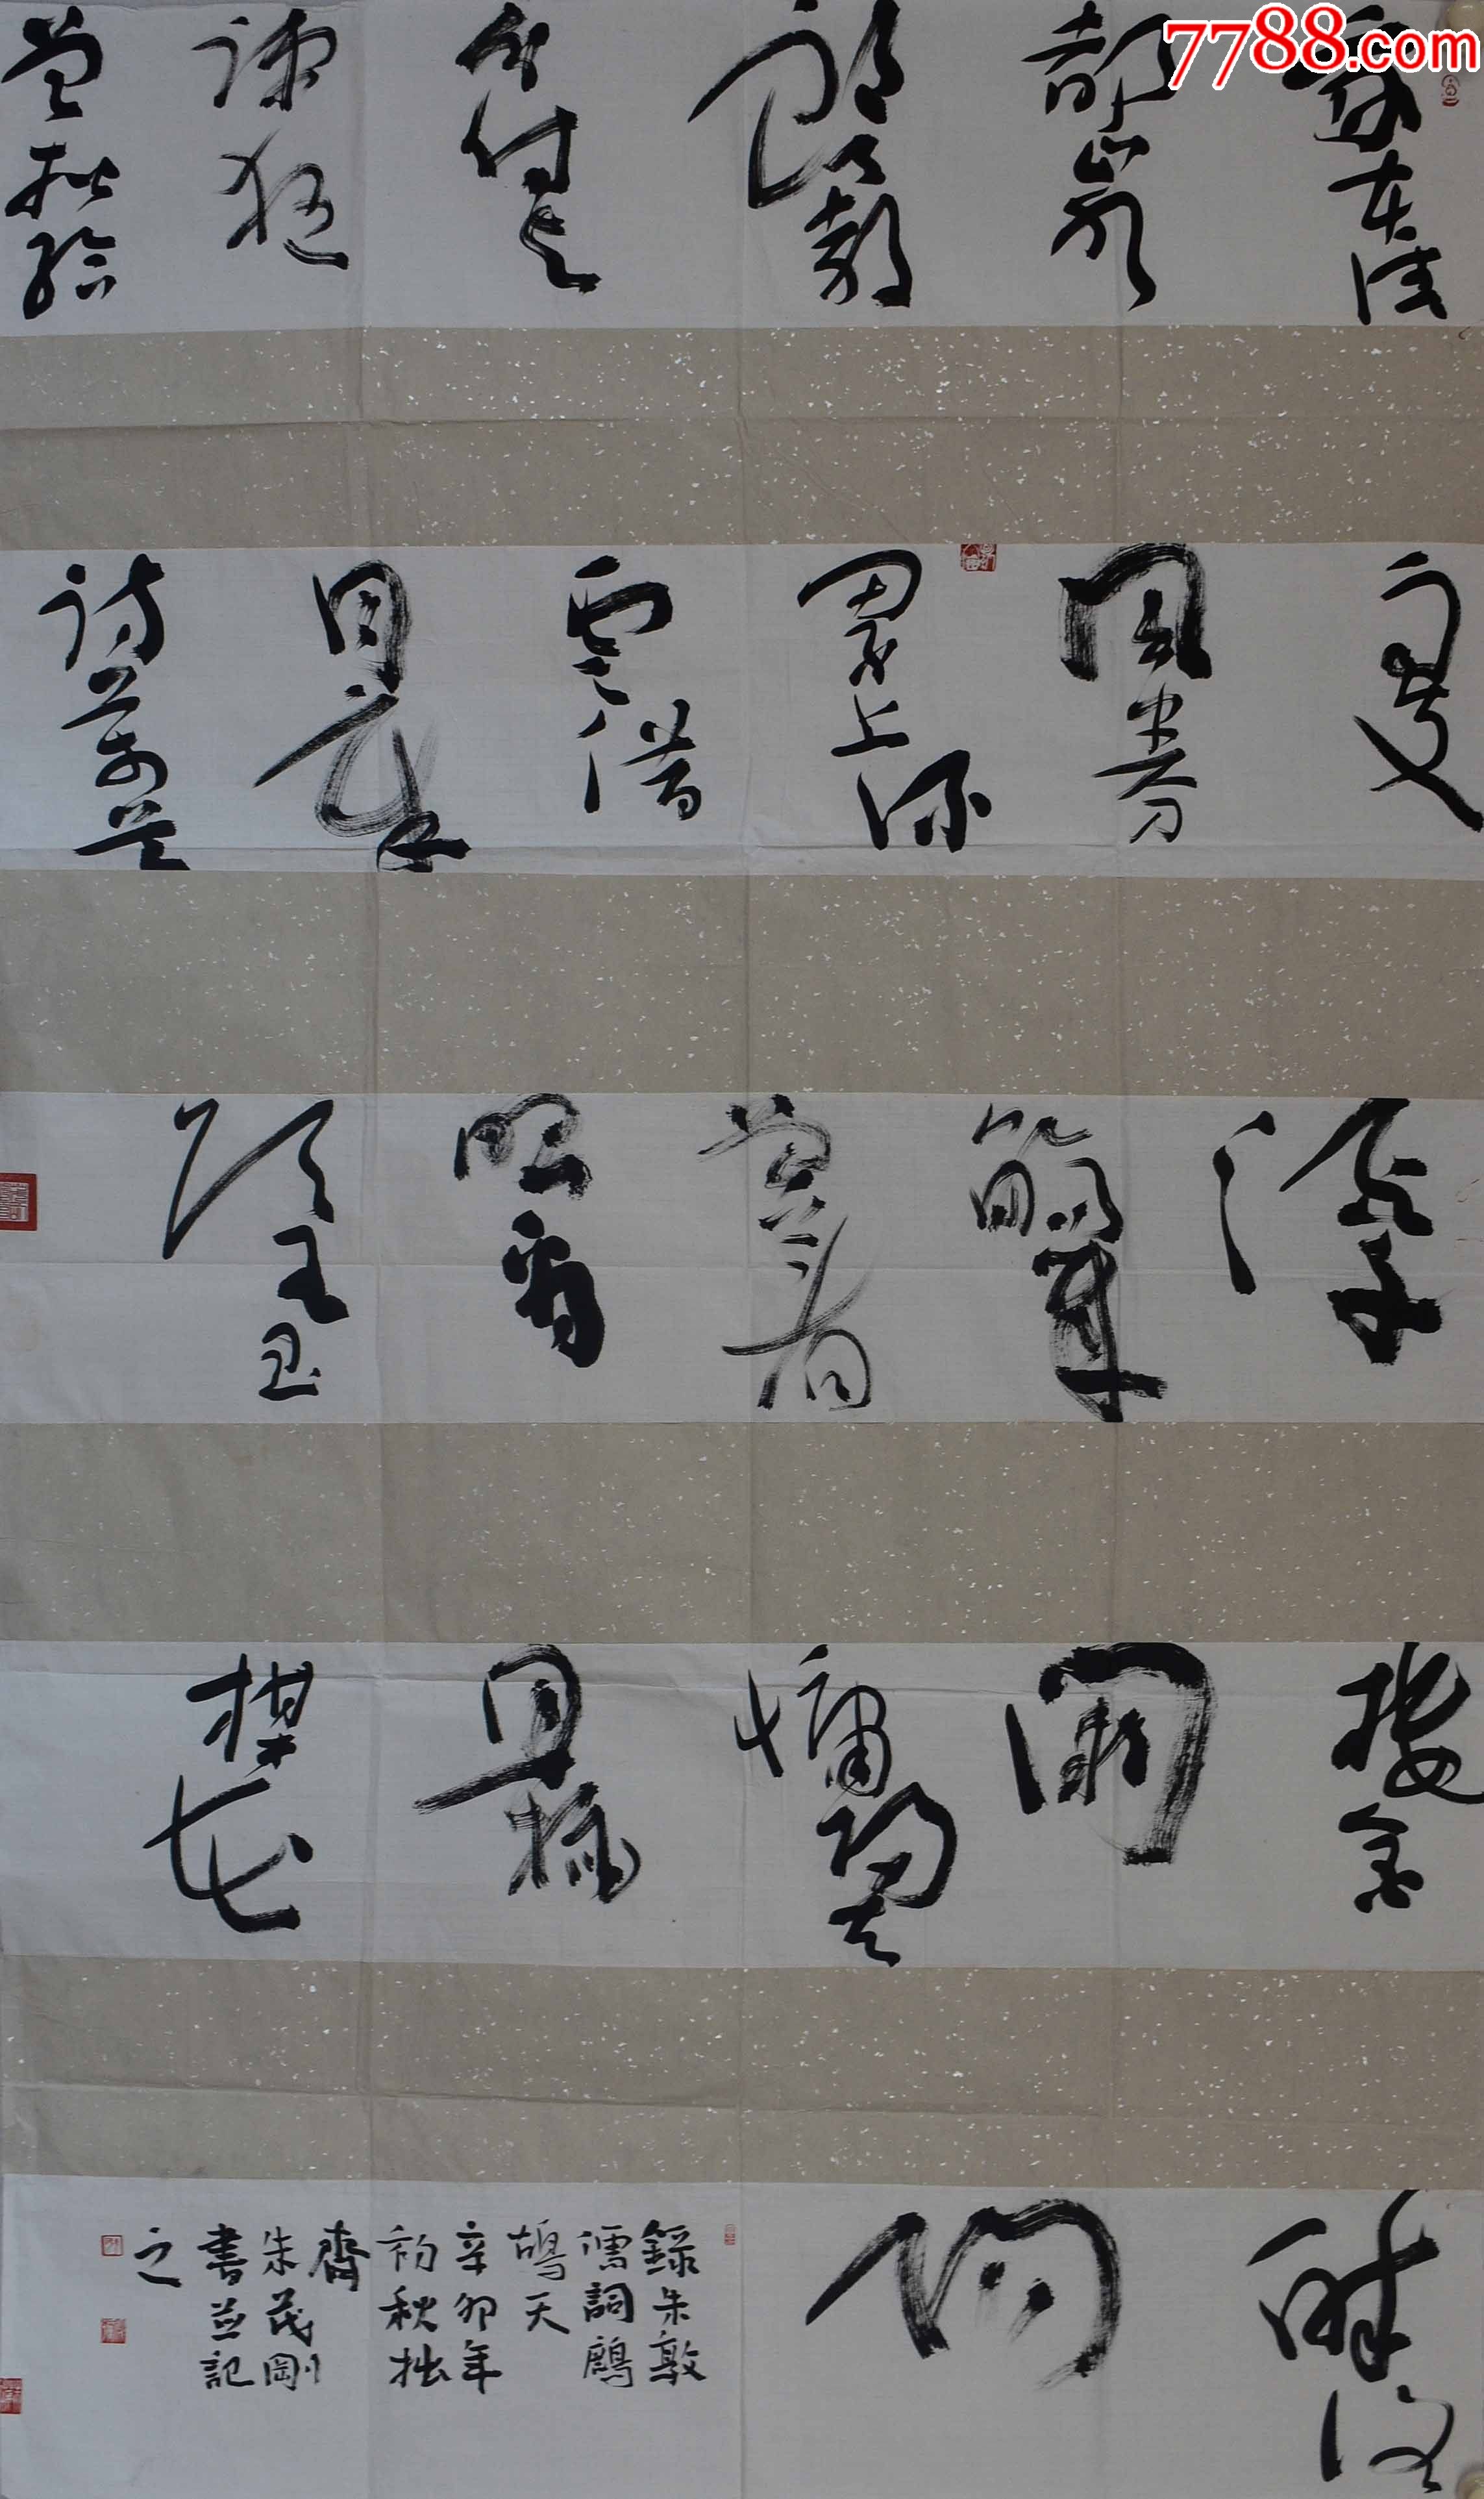 7788.com
我清
都山水
郎天教
分付与
疎狂
曾批给
雨支
風券
累上留
雲借
月章
诗万首
酒千
觴幾
曾着
眼看
侯王玉
楼金
阙
慵歸去
且插
梅花
醉洛
阳
錄朱敦
儒詞鷓
鴣天
辛卯年
初秋拙
齋
朱茂剛
書並記
之